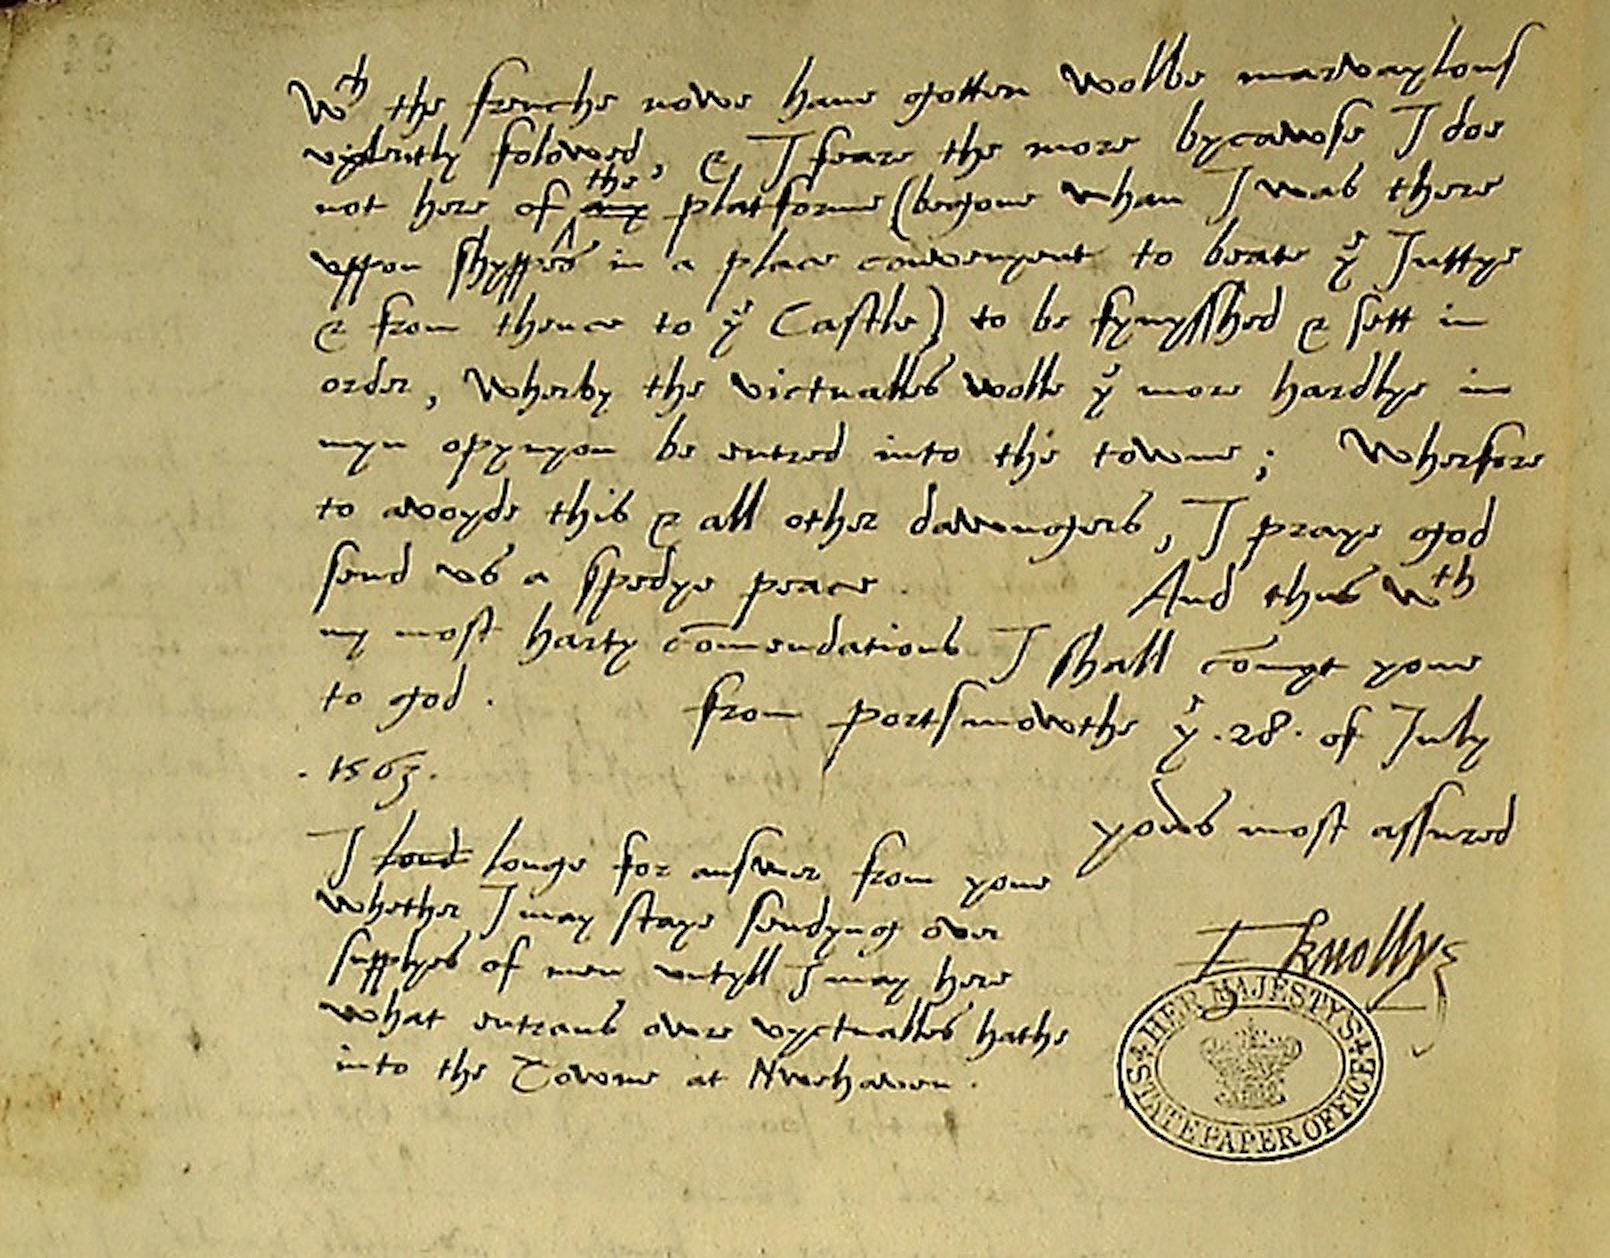 Wch the frenche nowe have gotten wolbe marvaylous
vyolently folowed, & I feare the more bycawse I doe
not here of any the platforme (begone whan I was there
uppon shyppes in a place convenyent to beate ye Juttye
& from thence to ye Castle) to be fynysshed & sett in
order, wherby the victualles wolle ye more hardlye in
myn opynyon be entred into the towne; Wherfore
to avoyde this & all other dawngers, I praye god
send us a spedye peace. And thus wth
my most harty comendations I shall comyt yowe
to god. from portsmowthe ye .28. of July
.1563.
yowrs most assured
I longe for answer from yowe
whether I may staye sendyng over
supplyes of men untyll I may here
what entrans owre vyctualles hathe
into the Towne at Nwehaven.
F knollys
HER MAJESTY'S STATE PAPER OFFICE